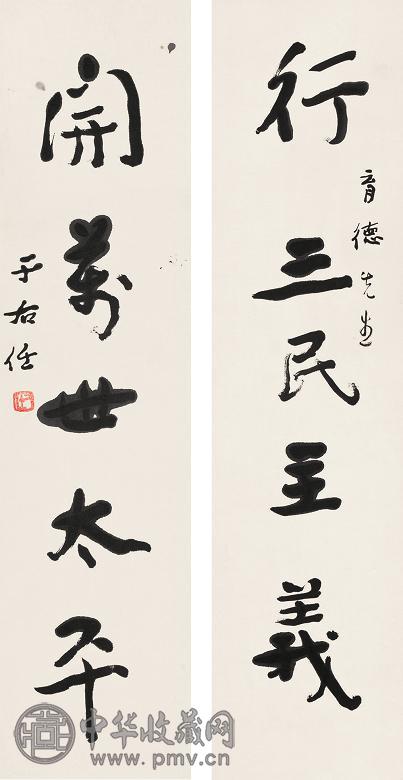 行三民主義
育德先生
開萬世太平
于右任
中华收藏网
www.pmv.cn